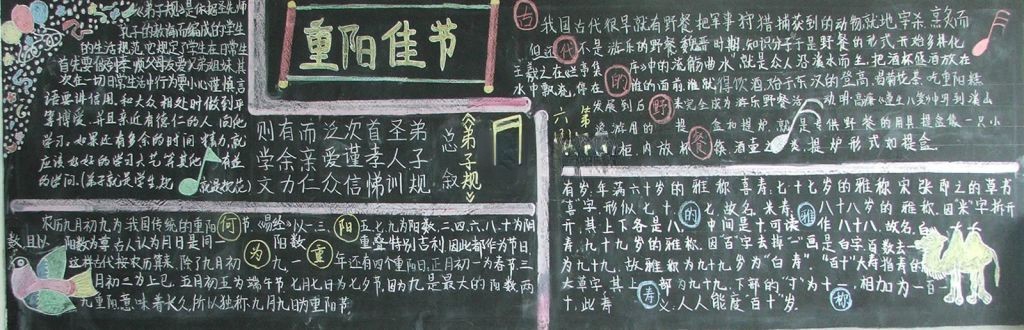 《弟子规》是依据圣先师
孔子的教育而编成的学生
的生活规范，它规定了学生在日常生
首先要做到孝顺父母，友爱兄弟姐妹，其
次在一切日常生活中行为要小心谨慎，言
语要讲信用，和大众相处时做到平
等博爱，并且亲近有德仁的人，向他
学习，如果还有多余的时间精力，就
应该好好的学习六艺等其他有益
的学问。（弟子就是学生，规 就是规范）
重阳佳节
总叙
《弟子规》
弟子规 圣人训
首孝悌 次谨信
泛爱众 而亲仁
有余力 则学文
农历九月初九为我国传统的重阳 何 节，《易经》以一、三、 阳 五、七、九为阳数，二、四、六、八、十为阴
数，且以阳数为尊，古人认为月日是同一 为 阳数 重 重叠特别吉利，因此都作为节日，
这样古代按农历算来，除了九月初九，一年还有四个重阳日，正月初一为春节，三
月初三为上巳，五月初五为端午节，七月七日为七夕节，因为九是最大的阳数，两
九重阳，意味着长久，所以独称九月九日为重阳节。
古 我国古代很早就有野餐，把军事狩猎捕获到的动物就地宰杀，烹熟而
但还 代 不是游乐的野餐，魏晋时期，知识分子于是野餐的形式开始多样化，
王羲之在兰亭集 序》中的“流觞曲水”就是众人沿溪水而坐，把酒杯盛酒放在
水中飘流，停在 的 谁的面前谁就得饮酒，始于东汉的登高、赏菊花、吃重阳糕
发展到后 野 来完全成为游乐野餐活动，明·高濂《遵生八笺》中写到溪山
六 第 逸游用的 提 餐 盒和提炉，就是专供野餐的用具，提盒像一只小
柜，内放杯 筷 酒壶之类，提炉形式如提盒
有岁，年满六十岁的雅称，喜寿，七十七岁的雅称，宋 张即之的草书
喜字，形似七十 的 七，故名，米寿 雅 八十八岁的雅称，因“米”字拆开
开，其上下各是八，中间是十，可读作八十八，故名，白
寿，九十九岁的雅称，因“百”字去掉“一”画是白字，百数去一
为九十九，故雅称为九十九岁为“白寿”，“百”“十”大寿指寿的
大草字，其上部为九十九，下部的“寸”为十一，相加为一百一
十，此寿 寿 义：人人能度“百十”岁 称